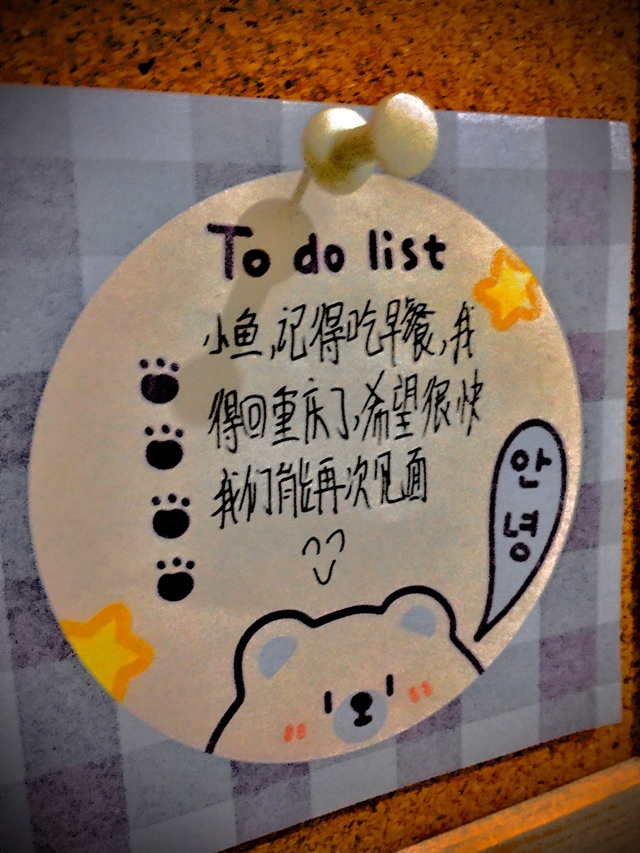 To do list
小鱼,记得吃早餐,我
得回重庆了,希望很快
我们能再次见面
안
녕